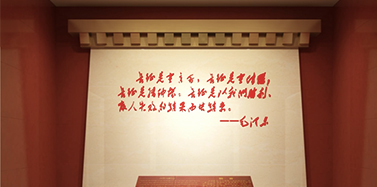 长征是宣言书，长征是宣传队，
长征是播种机。长征是以我们胜利、
敌人失败的结果而告结束。
——毛泽东